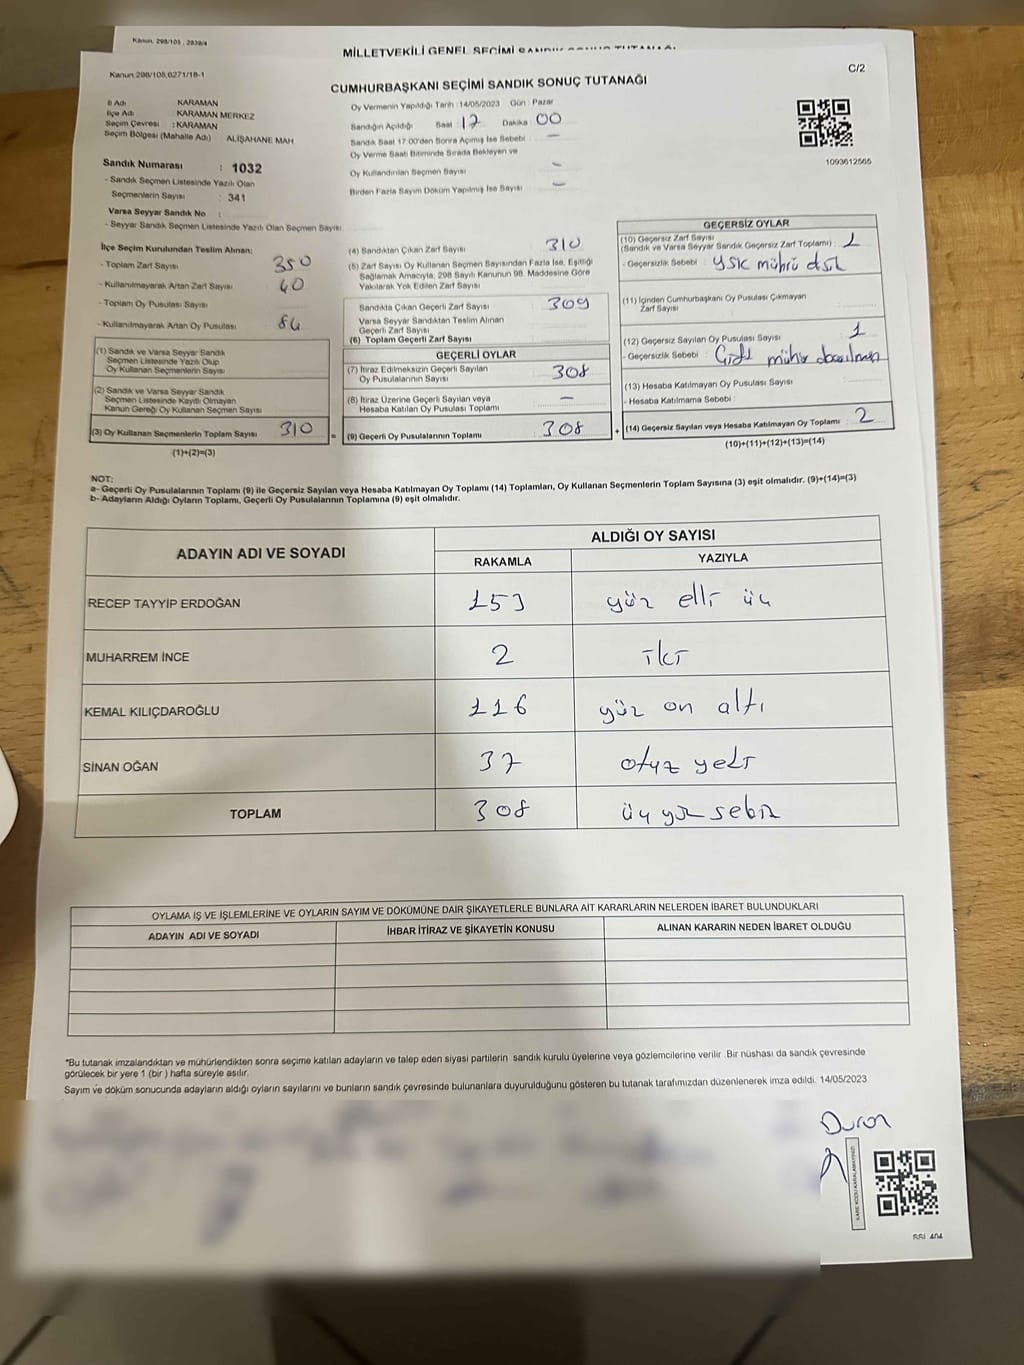 Kanun, 298/105 , 2839/4
MİLLETVEKİLİ GENEL SEÇİMİ SANDIK SONUÇ TUTANAĞI
Kanun,298/105,6271/18-1
C/2
CUMHURBAŞKANI SEÇİMİ SANDIK SONUÇ TUTANAĞI
İl Adı KARAMAN
İlçe Adı KARAMAN MERKEZ
Seçim Çevresi : KARAMAN
Seçim Bölgesi (Mahalle Adı) ALİŞAHANE MAH
Oy Vermenin Yapıldığı Tarih :14/05/2023 Gün : Pazar
Sandığın Açıldığı Saat 17 Dakika 00
Sandık Saat 17:00'den Sonra Açımış İse Sebebi : –
Oy Verme Saati Bitiminde Sırada Bekleyen ve
Oy Kullandırılan Seçmen Sayısı –
Birden Fazla Sayım Döküm Yapılmış İse Sayısı –
1093612565
Sandık Numarası : 1032
- Sandık Seçmen Listesinde Yazılı Olan
Seçmenlerin Sayısı : 341
Varsa Seyyar Sandık No :
- Seyyar Sandık Seçmen Listesinde Yazılı Olan Seçmen Sayısı
İlçe Seçim Kurulundan Teslim Alınan;
- Toplam Zarf Sayısı 350
- Kullanılmayarak Artan Zarf Sayısı 40
- Toplam Oy Pusulası Sayısı
- Kullanılmayarak Artan Oy Pusulası
(1) Sandık ve Varsa Seyyar Sandık
Seçmen Listesinde Yazılı Olup
Oy Kullanan Seçmenlerin Sayısı
(2) Sandık ve Varsa Seyyar Sandık
Seçmen Listesinde Kayıtlı Olmayan
Kanun Gereği Oy Kullanan Seçmen Sayısı
(3) Oy Kullanan Seçmenlerin Toplam Sayısı 310 =
(1)+(2)=(3)
(4) Sandıktan Çıkan Zarf Sayısı 310
(5) Zarf Sayısı Oy Kullanan Seçmen Sayısından Fazla İse, Eşitliği
Sağlamak Amacıyla, 298 Sayılı Kanunun 98. Maddesine Göre
Yakılarak Yok Edilen Zarf Sayısı
Sandıkta Çıkan Geçerli Zarf Sayısı 309
Varsa Seyyar Sandıktan Teslim Alınan
Geçerli Zarf Sayısı
(6) Toplam Geçerli Zarf Sayısı
GEÇERLİ OYLAR
(7) İtiraz Edilmeksizin Geçerli Sayılan
Oy Pusulalarının Sayısı 308
(8) İtiraz Üzerine Geçerli Sayılan veya
Hesaba Katılan Oy Pusulası Toplamı –
(9) Geçerli Oy Pusulalarının Toplamı 308 +
GEÇERSİZ OYLAR
(10) Geçersiz Zarf Sayısı
(Sandık ve Varsa Seyyar Sandık Geçersiz Zarf Toplamı) : 1
- Geçersizlik Sebebi : YSK mührü
(11) İçinden Cumhurbaşkanı Oy Pusulası Çıkmayan
Zarf Sayısı
(12) Geçersiz Sayılan Oy Pusulası Sayısı : 1
- Geçersizlik Sebebi : mühür
(13) Hesaba Katılmayan Oy Pusulası Sayısı
- Hesaba Katılmama Sebebi :
(14) Geçersiz Sayılan veya Hesaba Katılmayan Oy Toplamı : 2
(10)+(11)+(12)+(13)=(14)
NOT:
a- Geçerli Oy Pusulalarının Toplamı (9) ile Geçersiz Sayılan veya Hesaba Katılmayan Oy Toplamı (14) Toplamları, Oy Kullanan Seçmenlerin Toplam Sayısına (3) eşit olmalıdır. (9)+(14)=(3)
b- Adayların Aldığı Oyların Toplamı, Geçerli Oy Pusulalarının Toplamına (9) eşit olmalıdır.
ADAYIN ADI VE SOYADI
ALDIĞI OY SAYISI
RAKAMLA YAZIYLA
RECEP TAYYİP ERDOĞAN 153 yüz elli üç
MUHARREM İNCE 2 iki
KEMAL KILIÇDAROĞLU 116 yüz on altı
SİNAN OĞAN 37 otuz yedi
TOPLAM 308 üç yüz sekiz
OYLAMA İŞ VE İŞLEMLERİNE VE OYLARIN SAYIM VE DÖKÜMÜNE DAİR ŞİKAYETLERLE BUNLARA AİT KARARLARIN NELERDEN İBARET BULUNDUKLARI
ADAYIN ADI VE SOYADI İHBAR İTİRAZ VE ŞİKAYETİN KONUSU ALINAN KARARIN NEDEN İBARET OLDUĞU
*Bu tutanak imzalandıktan ve mühürlendikten sonra seçime katılan adayların ve talep eden siyasi partilerin sandık kurulu üyelerine veya gözlemcilerine verilir .Bir nüshası da sandık çevresinde
görülecek bir yere 1 (bir ) hafta süreyle asılır.
Sayım ve döküm sonucunda adayların aldığı oyların sayılarını ve bunların sandık çevresinde bulunanlara duyurulduğunu gösteren bu tutanak tarafımızdan düzenlenerek imza edildi. 14/05/2023
Duran